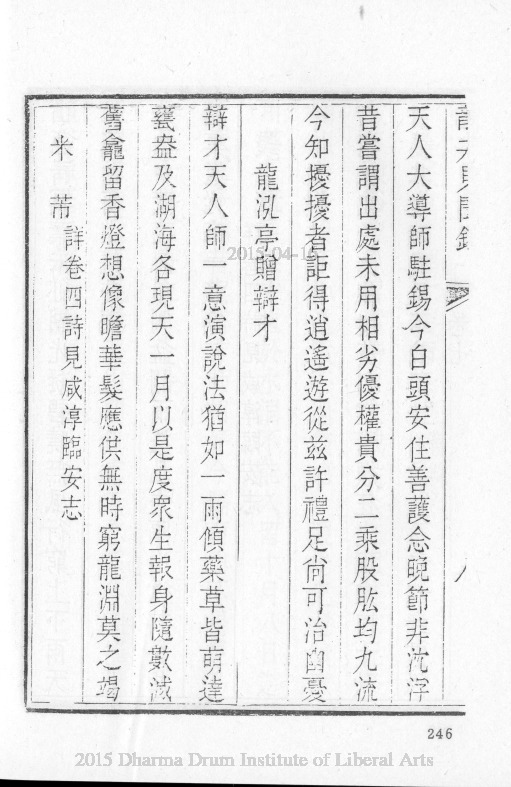 天人大導師駐錫今白頭安住善護念晚節非沈浮
昔嘗謂出處未用相劣優權貴分二乘股肱均九流
今知擾擾者詎得逍遙遊從茲許禮足尚可治幽憂
龍泓亭贈辯才
辯才天人師一意演說法猶如一雨傾藥草皆萌達
甕盎及湖海各現天一月以是度衆生報身隨數滅
舊龕留香燈想像瞻華髮應供無時窮龍淵莫之竭
米芾 詳卷四詩見咸淳臨安志
246
2015-04-1
2015 Dharma Drum Institute of Liberal Arts